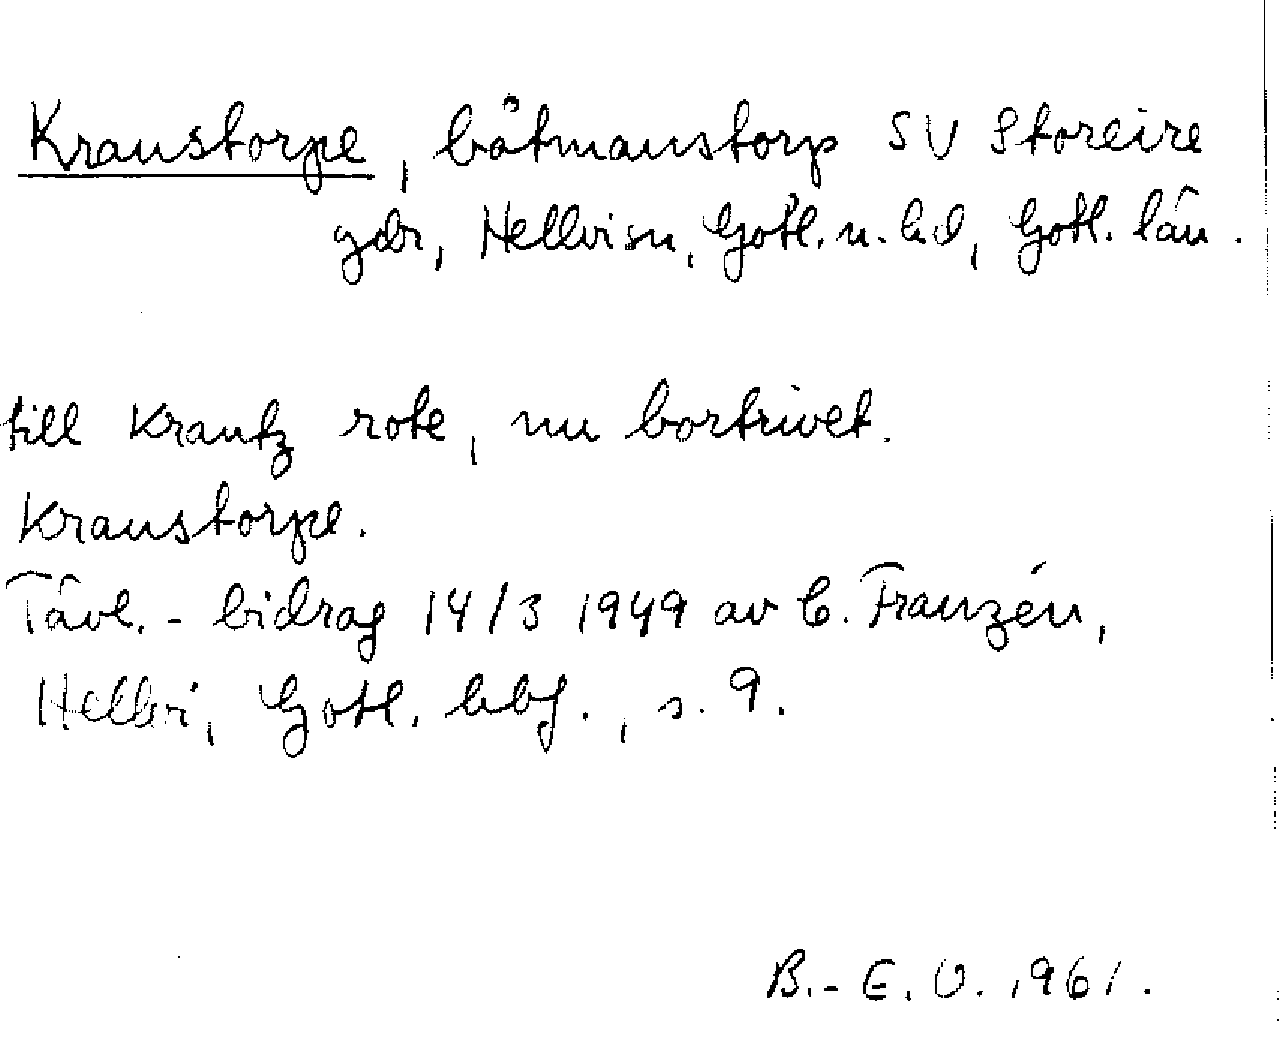 Kranstorpe, båtmanstorp SV Storeire
gdr, Hellvi sn, Gotl. n. hd, Gotl. län.
till Krantz rote, nu bortrivet.
Kranstorpe.
Tävl. - bidrag 14/3 1949 av C. Franzén,
Hellvi, Gotl. hbf., s. 9.
B.-E. O. 1961.